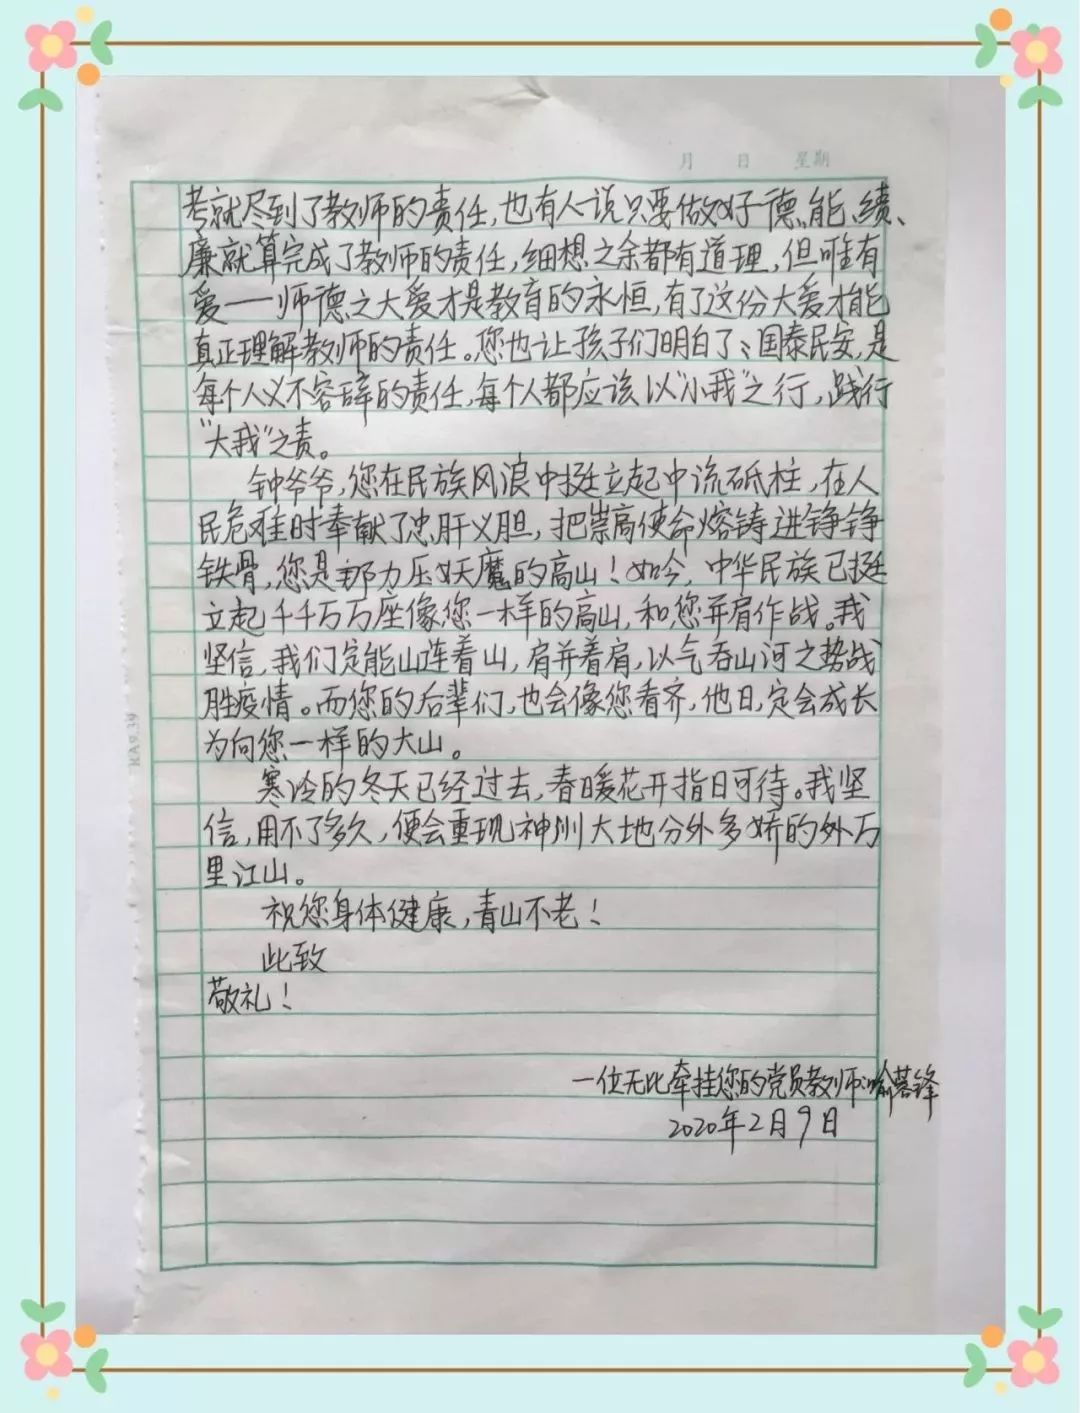 月 日 星期
考就尽到了教师的责任,也有人说只要做好德、能、绩、
廉就算完成了教师的责任,细想之余都有道理,但唯有
爱——师德之大爱才是教育的永恒,有了这份大爱才能
真正理解教师的责任。您也让孩子们明白了:国泰民安,是
每个人义不容辞的责任,每个人都应该以“小我”之行,践行
“大我”之责。
钟爷爷,您在民族风浪中挺立起中流砥柱,在人
民危难时奉献了忠肝义胆,把崇高使命熔铸进铮铮
铁骨,您是那力压妖魔的高山!如今,中华民族已挺
立起千千万万座像您一样的高山,和您并肩作战。我
坚信,我们定能山连着山,肩并着肩,以气吞山河之势战
胜疫情。而您的后辈们,也会像您看齐,他日,定会成长
为向您一样的大山。
寒冷的冬天已经过去,春暖花开指日可待。我坚
信,用不了多久,便会重现神州大地分外多娇的外万
里江山。
祝您身体健康,青山不老!
此致
敬礼!
一位无比牵挂您的党员教师:喻蓉锋
2020年2月9日